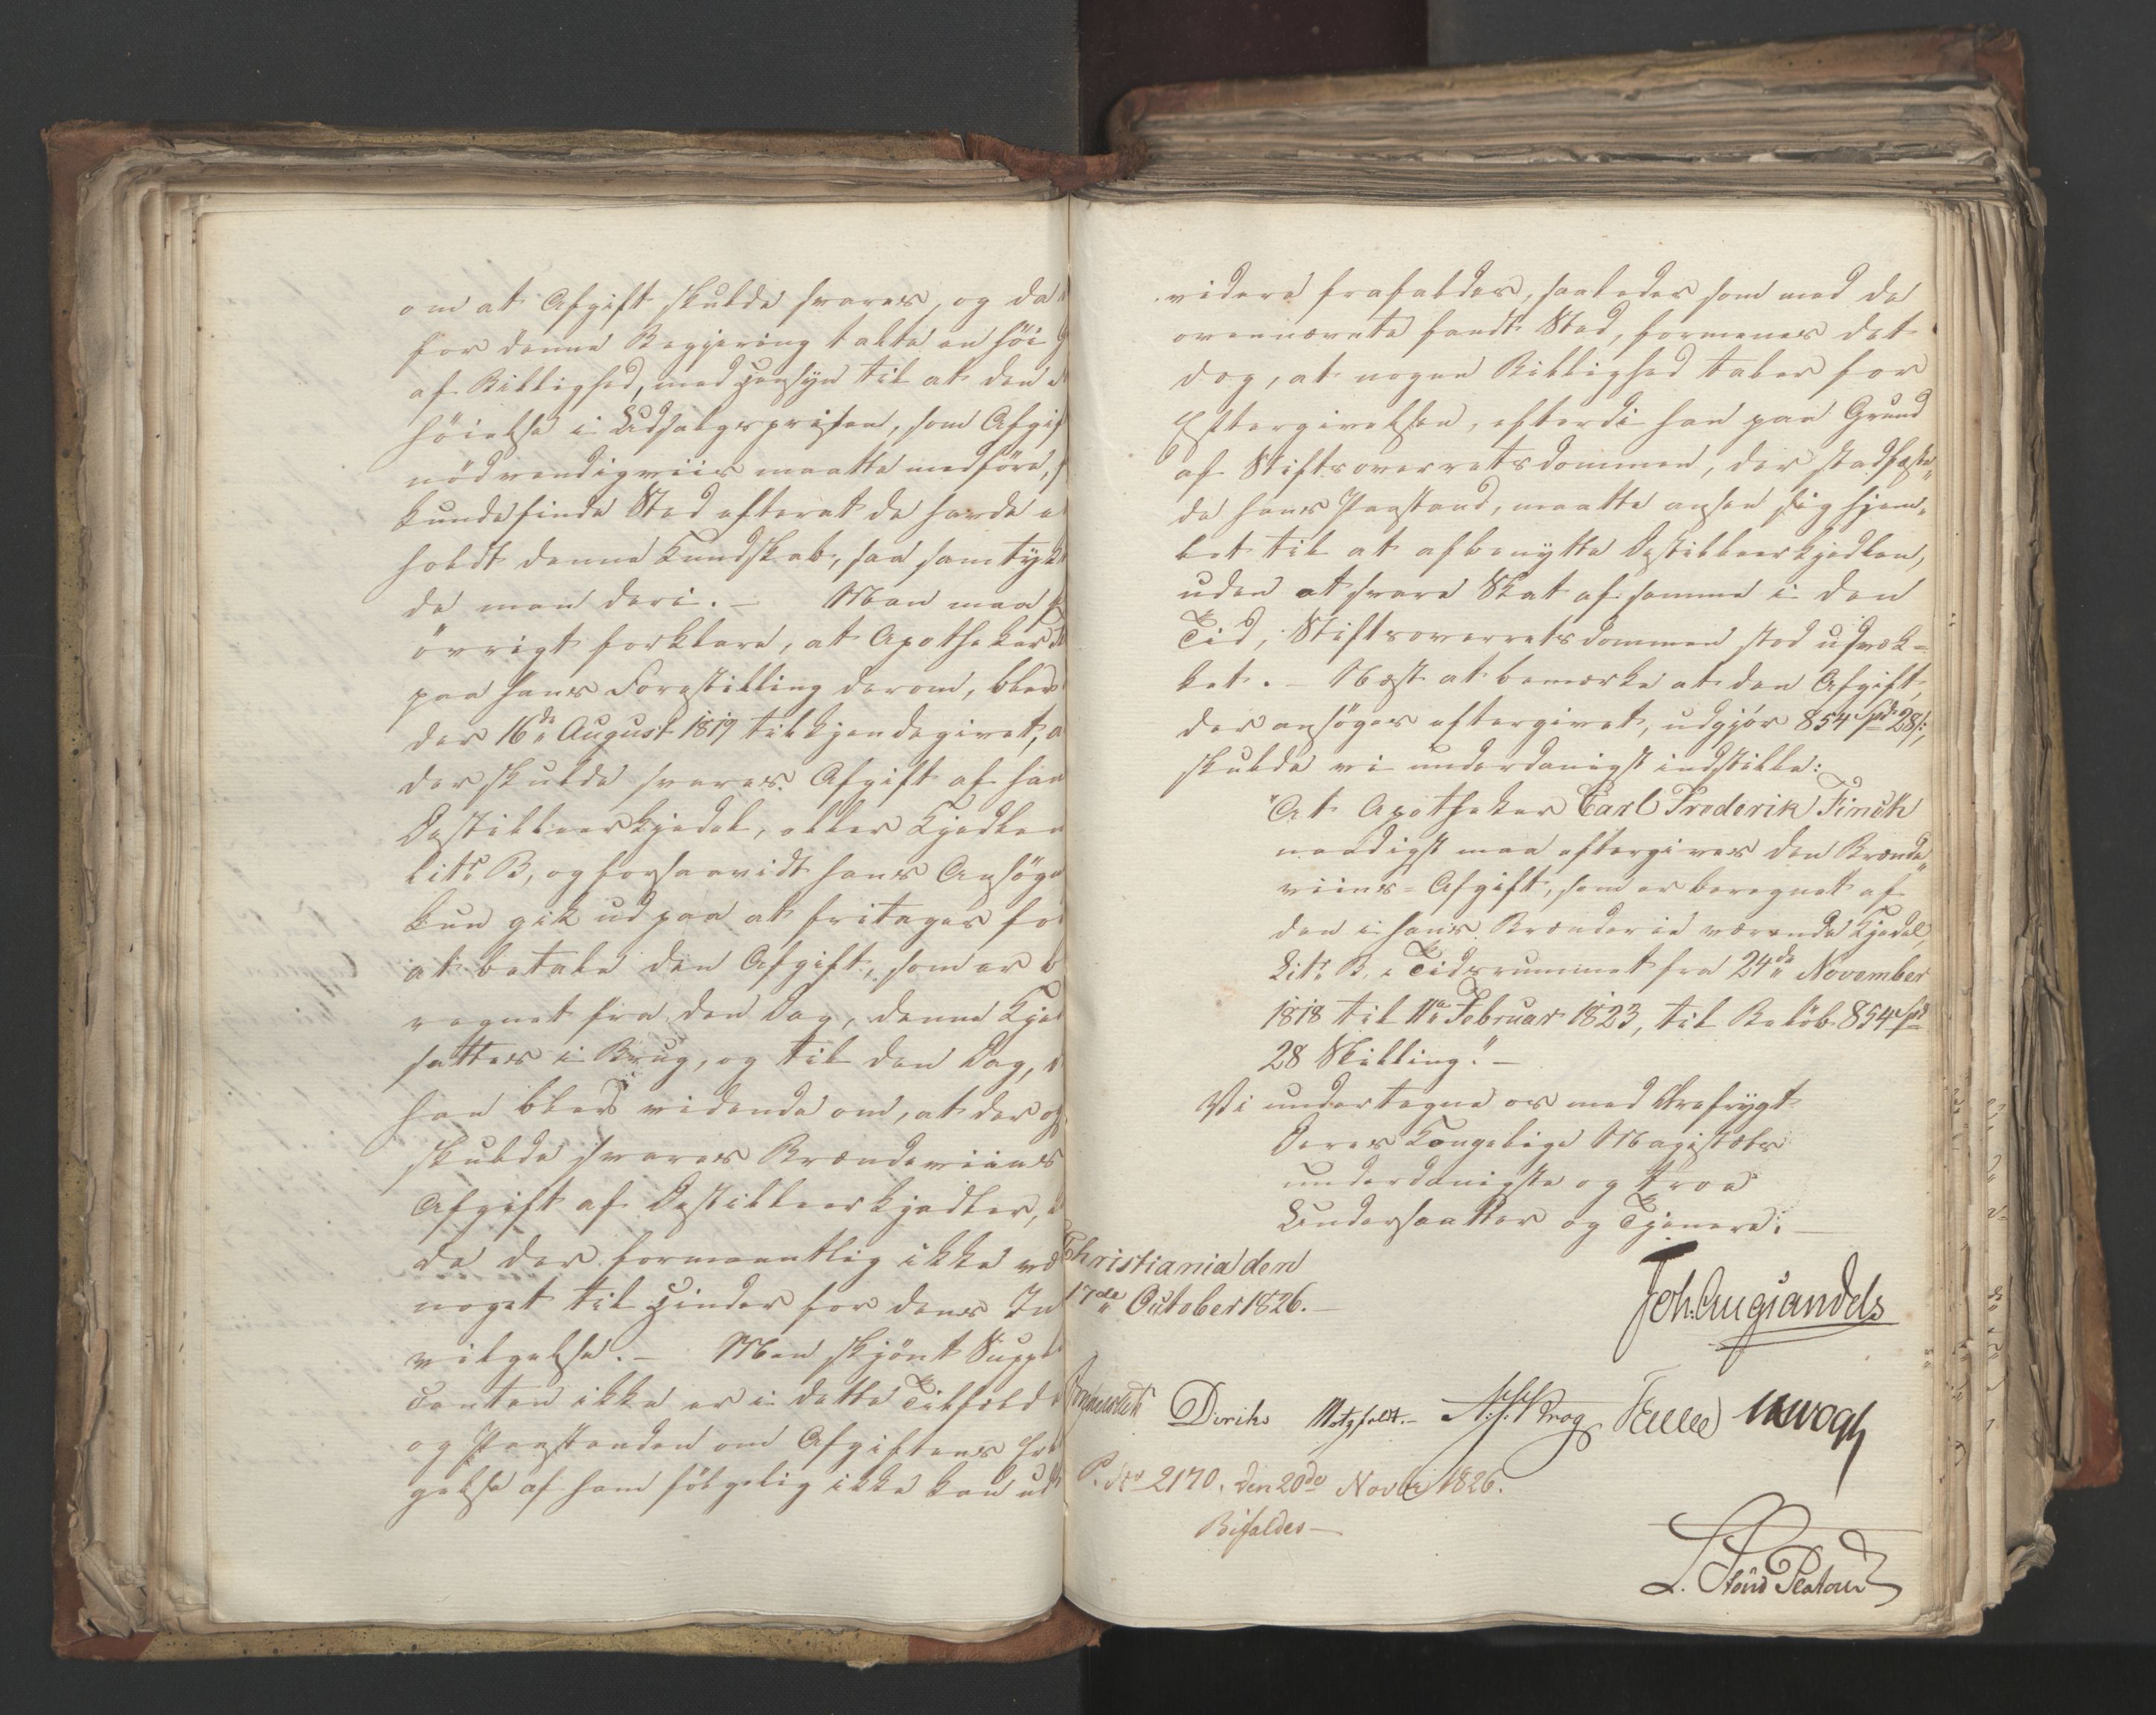 om at Afgift skulde svares, og da
for denne Begjering talte en høi G
af Billighed, med Hensyn til at den
høielse i Udsalgsprisen, som Afgif
nødvendigviis maatte medføre,
kunde finde Sted efterat de havde e
holdt denne Kundskab, saa samtyk
de man deri. – Man maa f
øvrigt forklare, at Apotheker
paa hans Forestilling derom, blev
der 16de August 1819 tilkjendegivet, a
der skulde svares Afgift af han
Destilleerkjedel, eller Kjedlen
Litr B, og forsaavidt hans Ansøgn
kun gik ud paa at fritages for
at betale den Afgift, som er b
regnet fra den Dag, denne Kjed
sattes i Brug, og til den Dag,
han blev vidende om, at der og
skulde svares Brændeviins
Afgift af Destilleerkjedler,
de der formeentlig ikke væ
noget til Hinder for dens Ind
vilgelse. – Men skjönt Suppl
canten ikke er i dette Tilfælde
og Paastanden om Afgiftens Fra
gelse af ham følgelig ikke kan ud
videre frafaldes, saaledes som med de
ovennævnte fandt Sted, formenes det
dog, at nogen Billighed taler for
Eftergivelsen, efterdi han paa Grund
af Stiftsoverretsdommen, der stadfæste„
de hans Paastand, maatte ansee sig hjem„
let til at afbenytte Destilleerkjedlen,
uden at svare Skat af samme i den
Tid, Stiftsoverretsdommen stod usvæk-
ket. – Næst at bemærke at den Afgift,
der ansøges eftergivet, udgjör 854 Spd 28 s,
skulde vi underdanigst indstille:
"At Apotheker Carl Frederik Finckh
naadigst maa eftergives den Brænde„
viins-Afgift, som er beregnet af
den i hans Brænderie værende Kjedel,
Litr B. i Tidsrummet fra 24de November
1818 til 11te Februar 1823, til Beløb 854 Spd
28 Skilling." –
Vi undertegne os med Ærefrygt
Deres Kongelige Majestæts
underdanigste og troe
Undersaatter og Tjenere. –
Christiania den
17de October 1826. –
Joh. Aug. Sandels
Diriks Motzfeldt. – Krog
P. No 2170. Den 20de Novbr 1826.
Bifaldes –
L. Stoud Platou